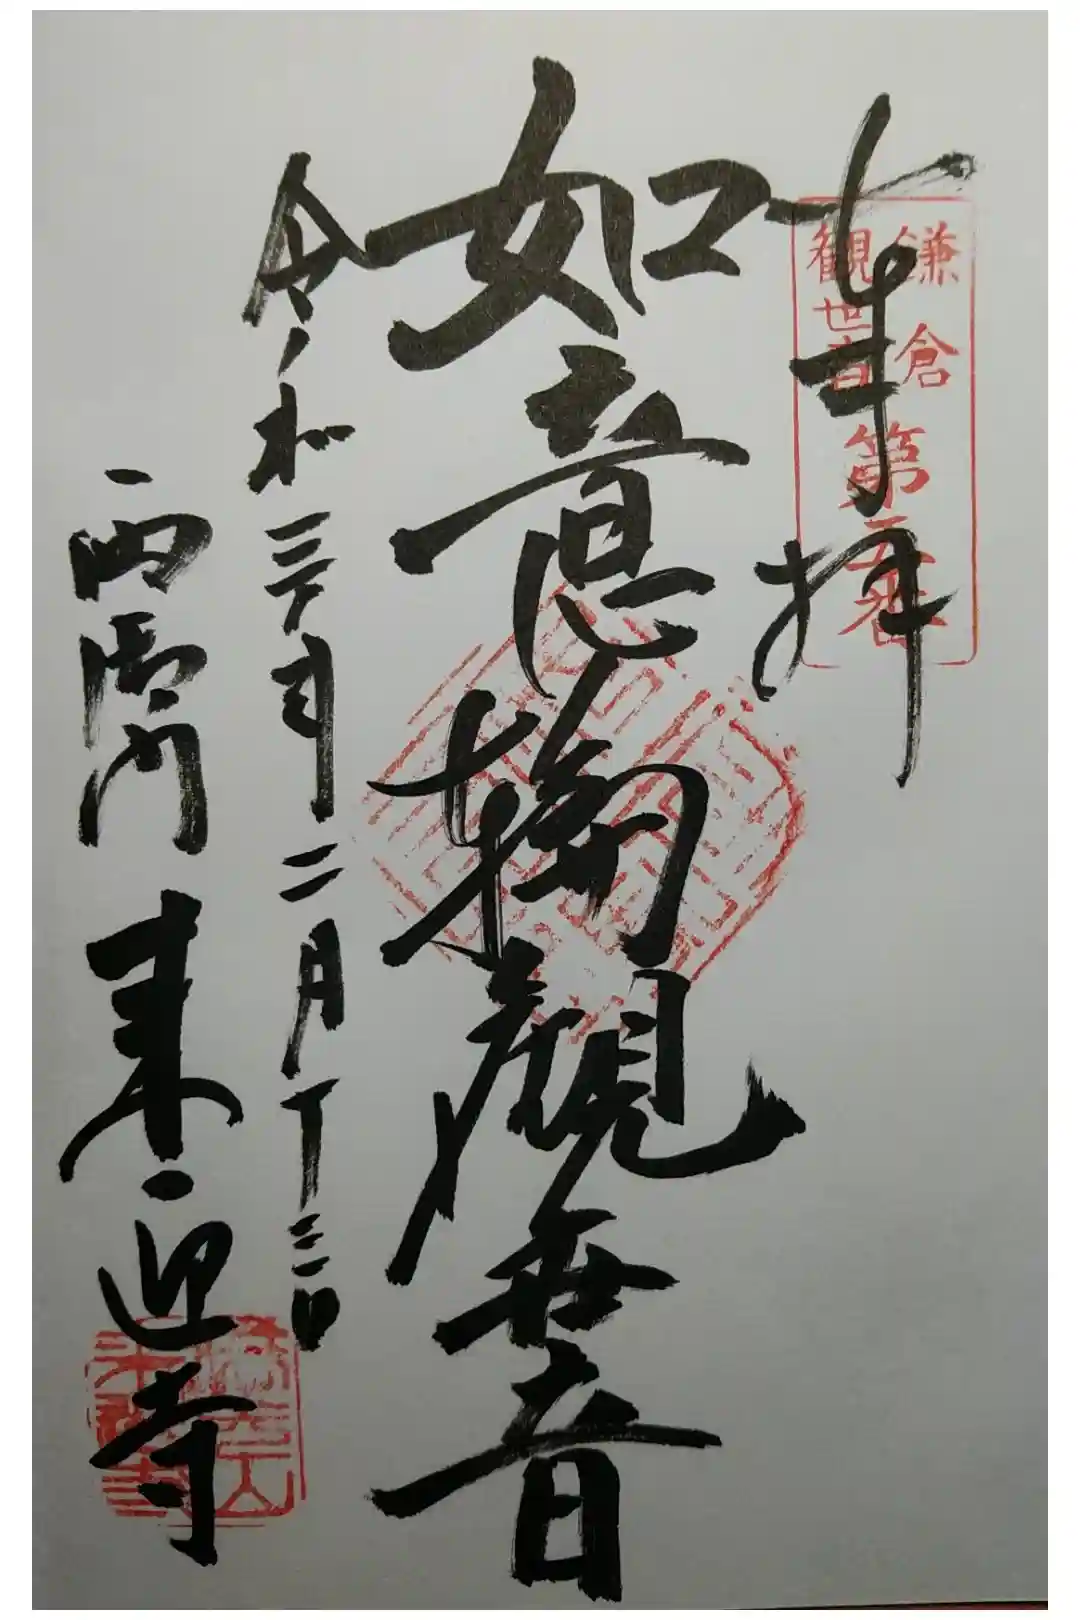 奉拝
鎌倉
観世音
第五番
如意輪観世音
令和三年二月十三日
西御門
来迎寺
満光山
来迎寺